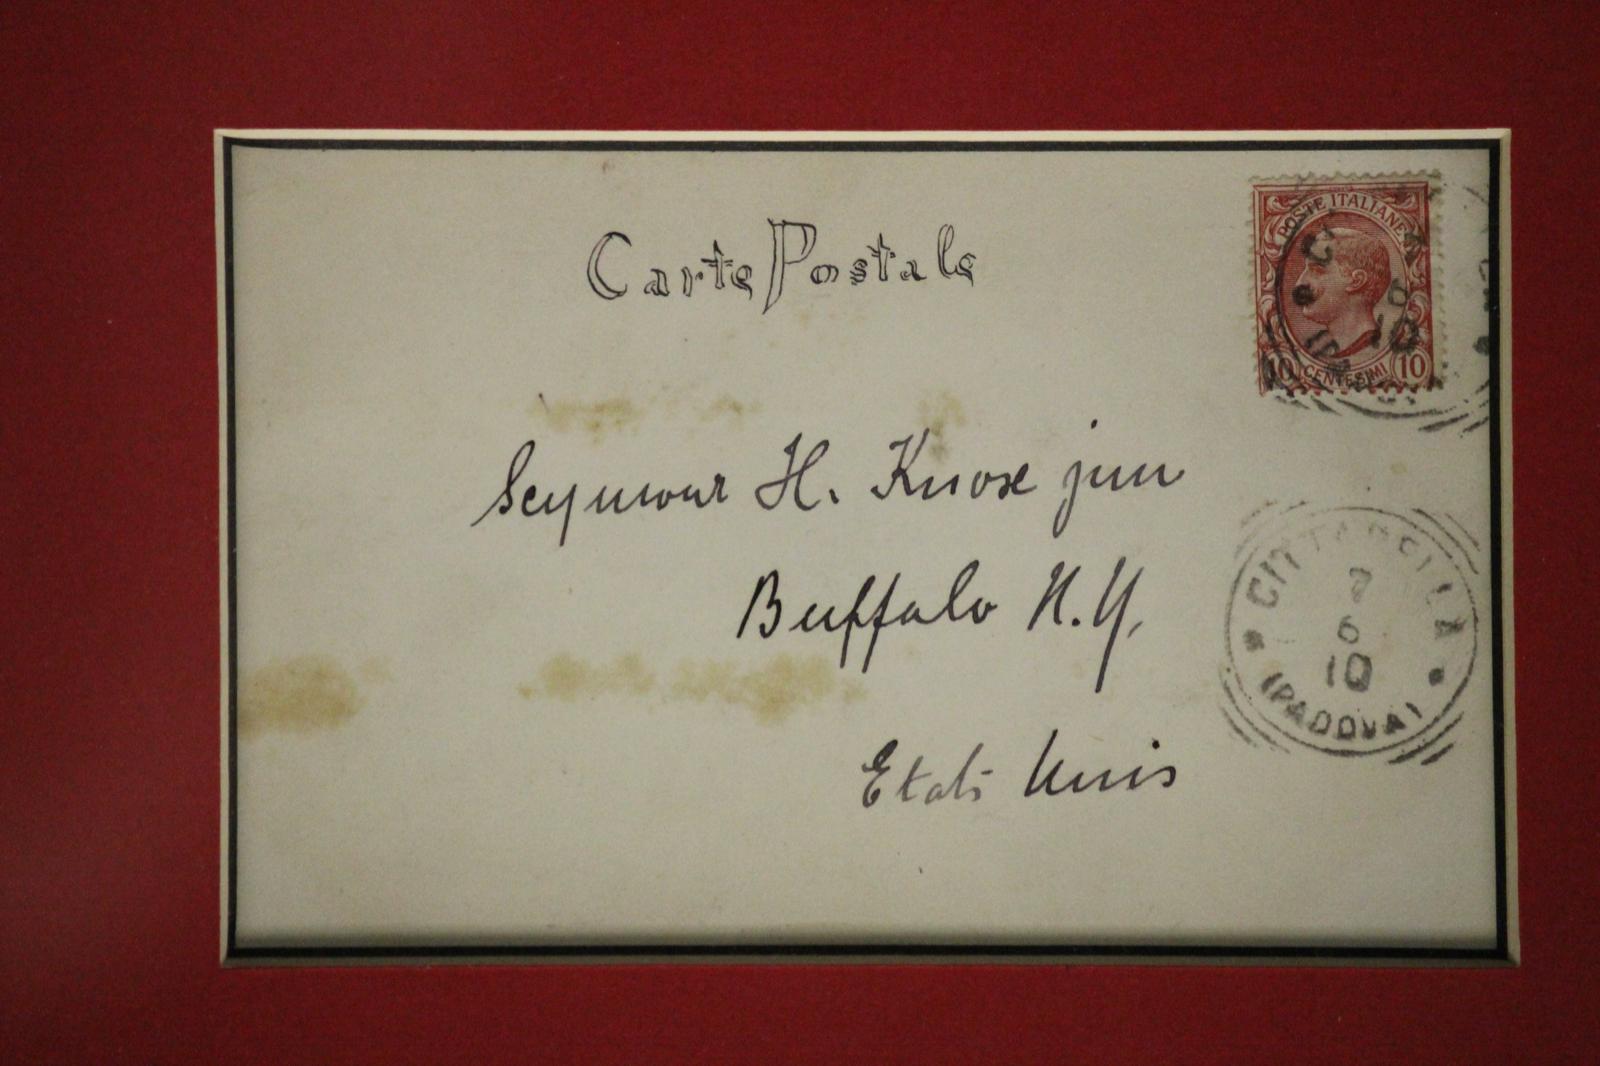 Carte Postale
POSTE ITALIANE
10 CENTESIMI 10
6
10
Seymour H. Knox jun
Buffalo N.Y.
Etats Unis
CITTADELLA
7
6
10
(PADOVA)